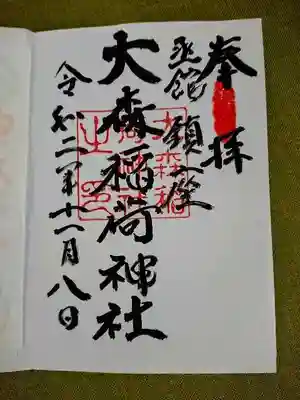 奉拝
函館 鎮座
大森稲荷神社
令和二年十一月八日